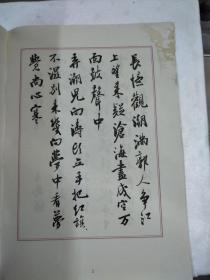 長憶觀潮滿郭人争江
上望来疑滄海盡成空万
面鼓聲中
弄潮児向涛头立手把红旗
不溼别来幾向夢中看夢
覺尚心寒